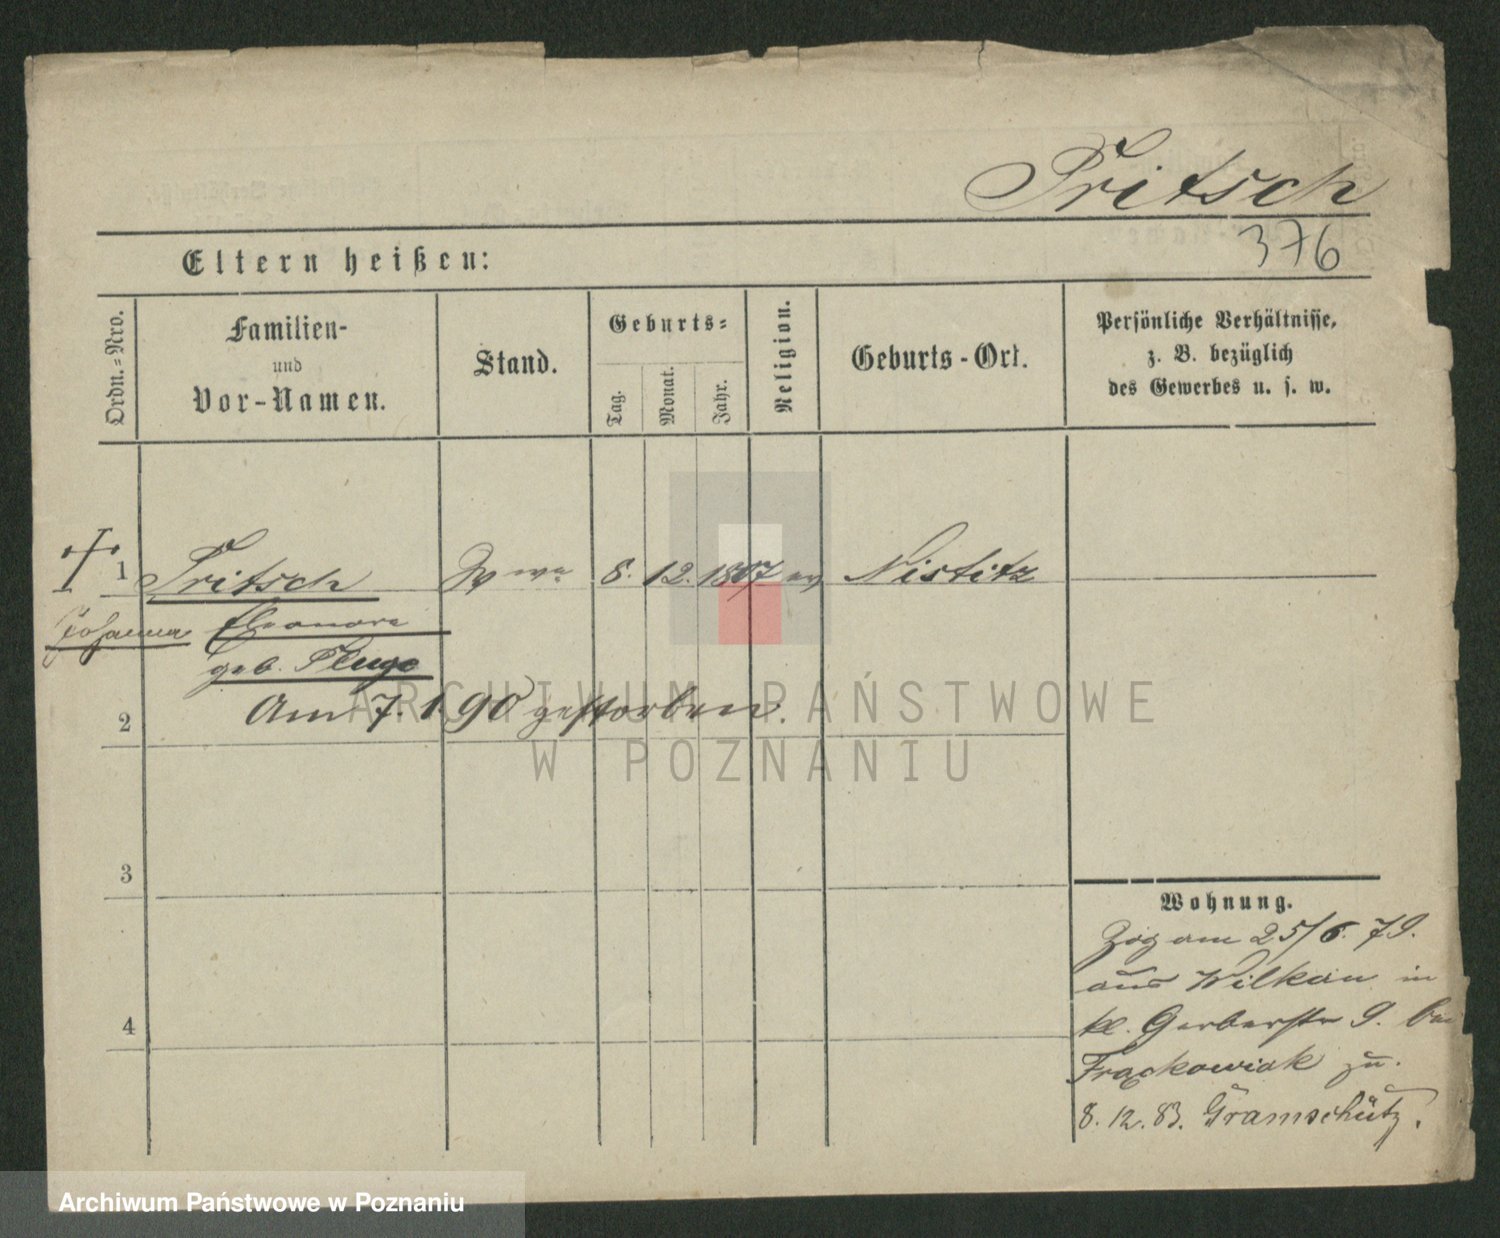 Fritsch
376
Eltern heißen:
Ordn.-Nro.
Familien-
und
Vor-Namen.
Stand.
Geburts-
Tag.
Monat.
Jahr.
Religion.
Geburts-Ort.
Persönliche Verhältnisse,
z. B. bezüglich
des Gewerbes u. s. w.
1 Fritsch Wwe 8. 12. 1817 ev Nistitz
Johanna Eleonore
geb. Pluge
Am 7. 1. 90 gestorben.
2
3
4
Wohnung.
Zog am 25/6. 79.
aus Wilkau in
kl. Gerberstr 9. bei
Frąckowiak zu.
8. 12. 83. Gramschütz.
ARCHIWUM PAŃSTWOWE
W POZNANIU
Archiwum Państwowe w Poznaniu